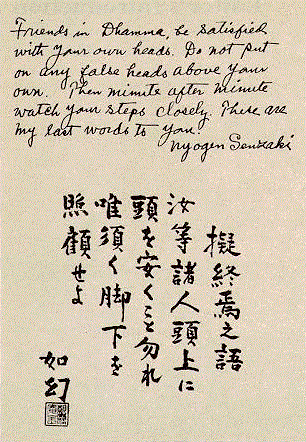 Friends in Dhamma, be satisfied
with your own heads. Do not put
on any false heads above your
own. Then minute after minute
watch your steps closely. These are
my last words to you.
Nyogen Senzaki
擬終焉之語
汝等諸人頭上に
頭を安くこと勿れ
唯須く脚下を
照顧せよ
如幻